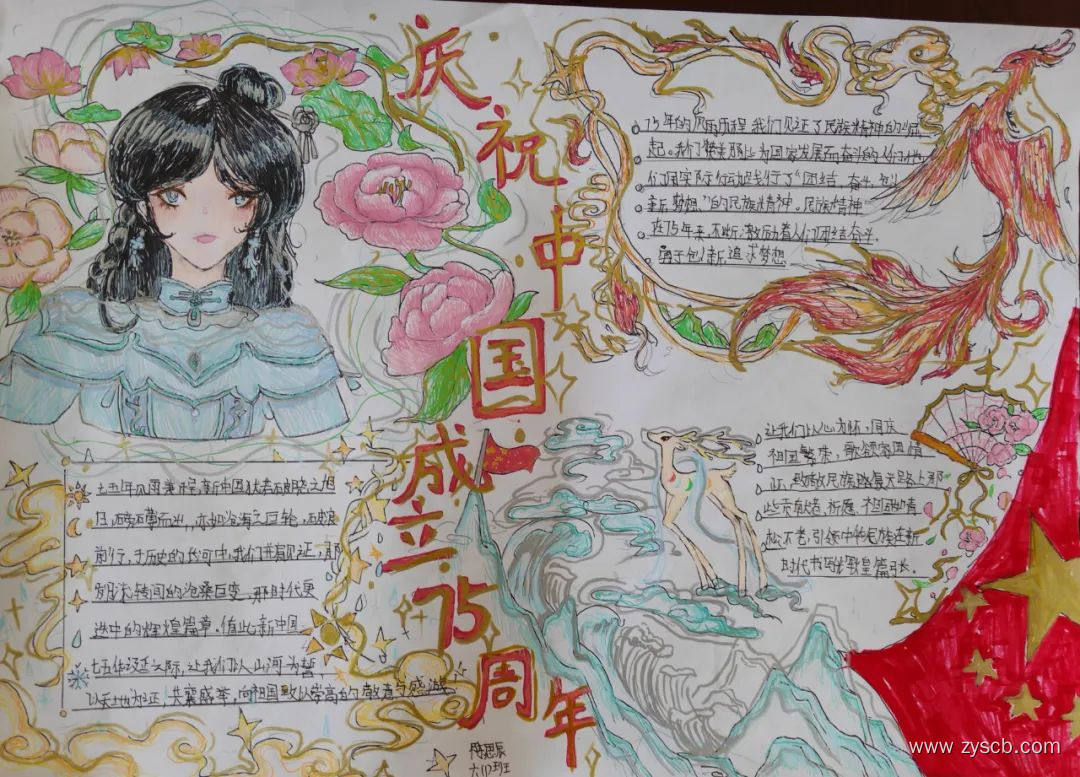 庆祝中国成立75周年
75年的风雨历程,我们见证了民族精神的崛
起。我们赞美那些为国家发展而奋斗的人们,他
们用实际行动践行了“团结、奋斗、创
新、梦想”的民族精神。民族精神
在75年来,不断激励着人们团结奋斗、
勇于创新、追求梦想
七十五年风雨兼程,新中国犹若破晓之旭
日,喷薄而出,亦如沧海之巨轮,破浪
前行,于历史的长河中,我们共同见证,那
间的沧桑巨变,那时代更
迭中的辉煌篇章。值此新中国
七五华诞之际,让我们以山河为誓,
以天地为证,共襄盛举,向祖国致以崇高的敬意与感激
让我们以心为怀,同庆
祖国繁荣,歌颂家国情
以致敬民族盛复天路上那
些贡献者,祈愿,祖国如青
松不老,引领中华民族在新
时代书写优歌皇篇章。
六(1)班
www.zyscb.com